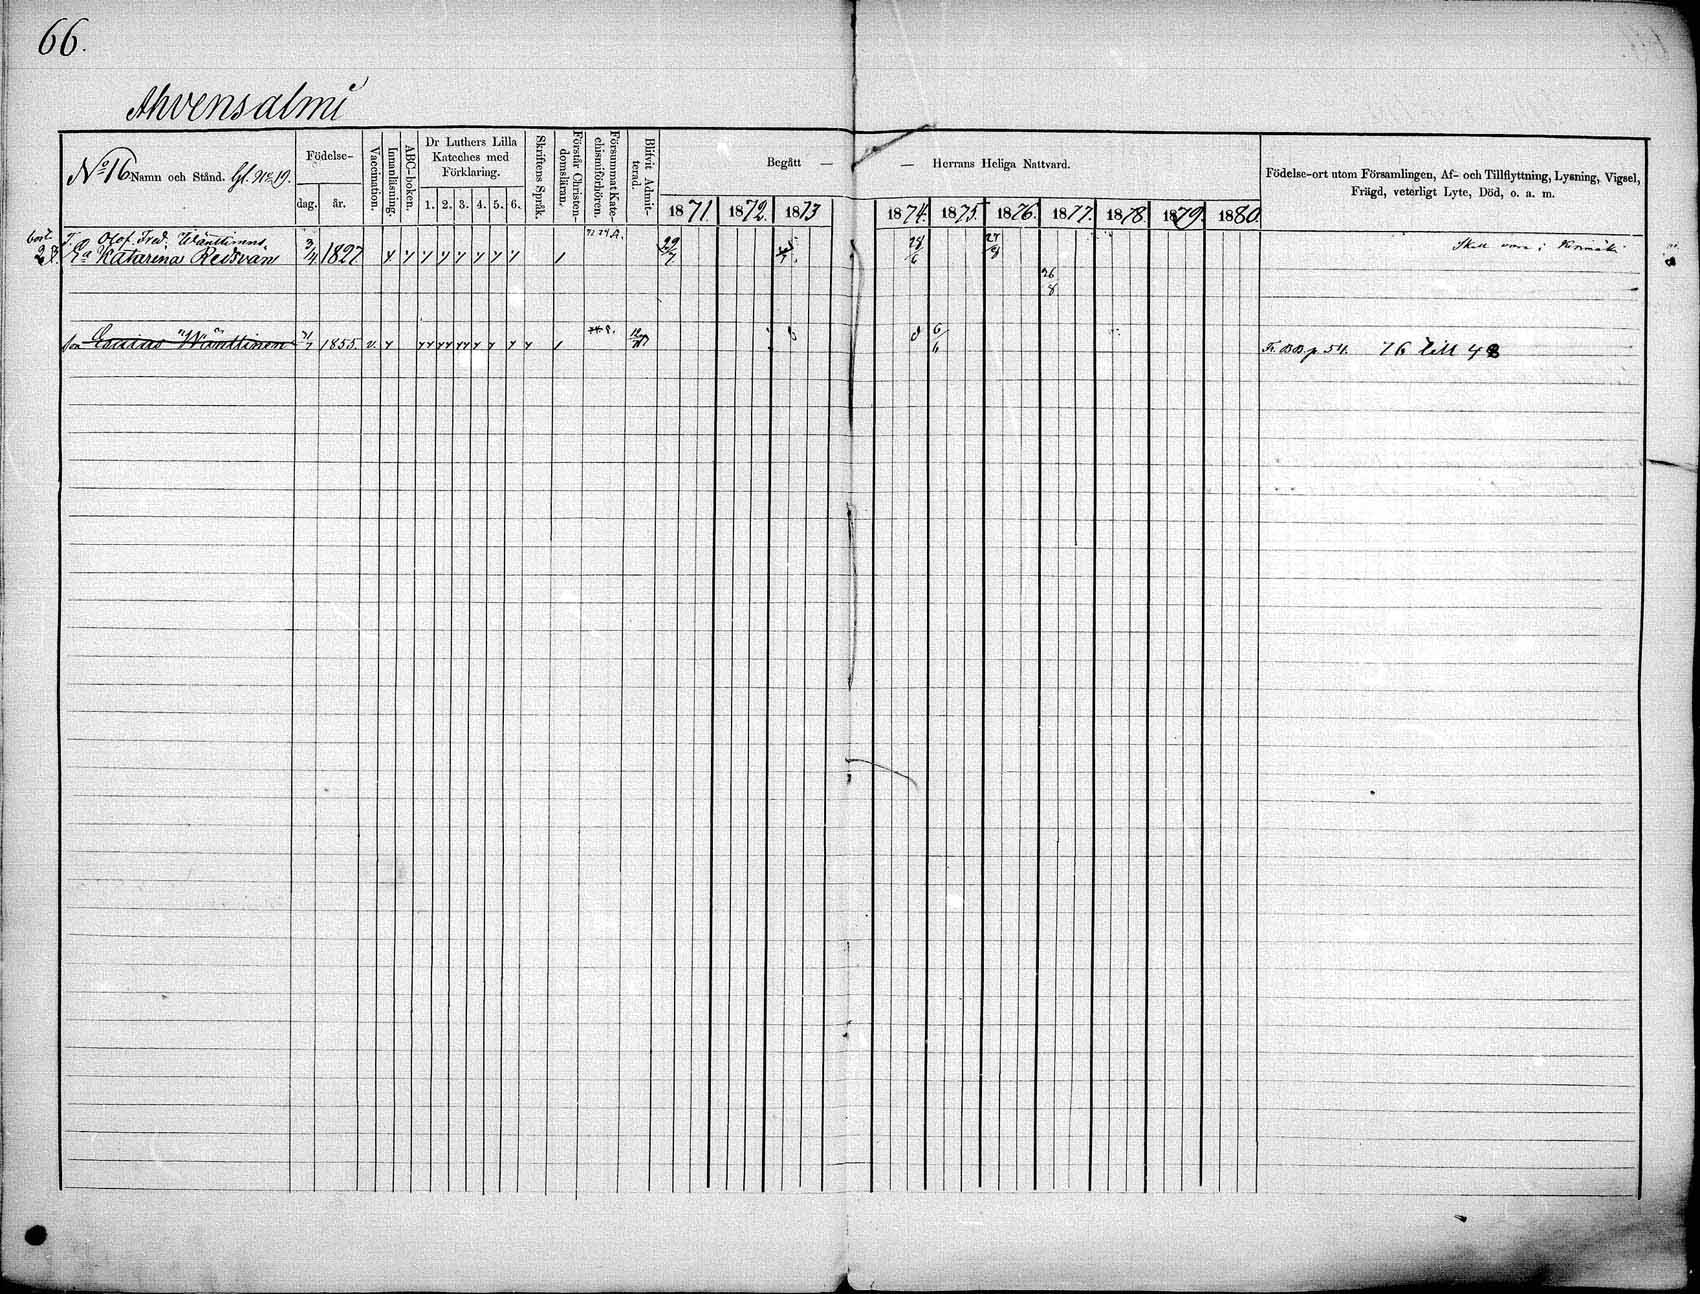 66.
Ahvensalmi
No 16 Namn och Stånd. Gl. No 19.
Födelse-
dag. år.
Vaccination.
Innanläsning.
ABC-boken.
Dr Luthers Lilla
Kateches med
Förklaring.
1. 2. 3. 4. 5. 6.
Skriftens Språk.
Förstår Christen-
domsläran.
Försummat Kate-
chismiförhören.
Blifvit Admit-
terad.
Begått — — Herrans Heliga Nattvard.
1871. 1872. 1873 1874. 1875. 1876. 1877. 1878. 1879. 1880.
Födelse-ort utom Församlingen, Af- och Tillflyttning, Lysning, Vigsel,
Frägd, veterligt Lyte, Död, o. a. m.
Olof Fred.
Katarina Reisvan 3/4 1827
29/7 28/6 27/8
Skall vara i
26
8
son Wänttinen 1855. v.
6/6
Fr. BB. p. 54. 76 till 48